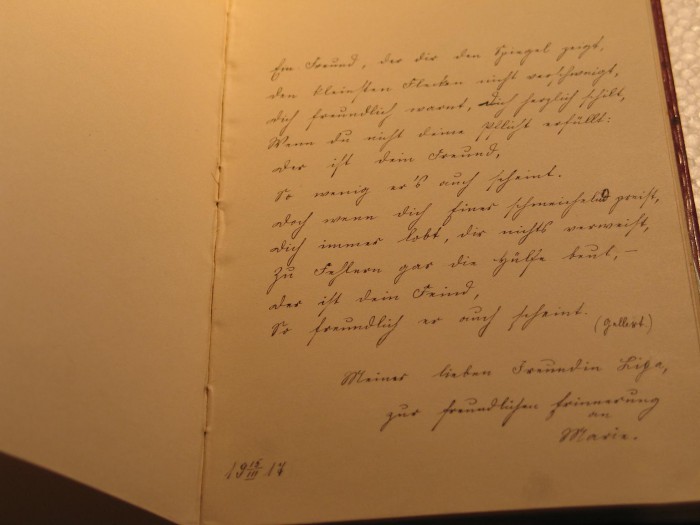 Ein Freund, der dir den Spiegel zeigt,
den kleinsten Flecken nicht verschweigt,
dich freundlich warnt, dich herzlich schilt,
Wenn du nicht deine Pflicht erfüllt:
der ist dein Freund,
So wenig er's auch scheint.
Doch wenn dich Einer schmeichelnd preist,
dich immer lobt, dir nichts verweist,
Zu Fehlern gar die Hülfe beut, –
der ist dein Feind,
So freundlich er auch scheint.
(Gellert.)
Meiner lieben Freundin Liga,
zur freundlichen Erinnerung
an
Marie.
19 15/III 17